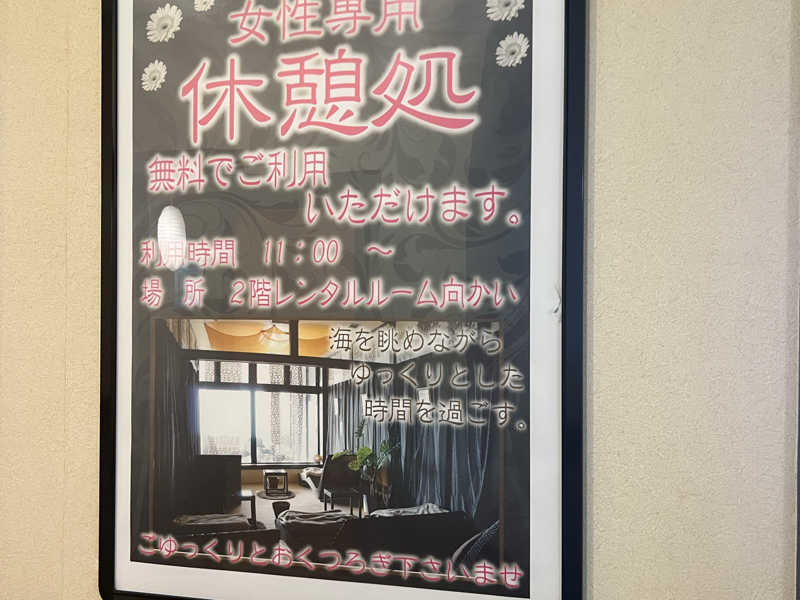 女性専用
休憩処
無料でご利用
いただけます。
利用時間 11:00 ～
場 所 2階レンタルルーム向かい
海を眺めながら
ゆっくりとした
時間を過ごす。
ごゆっくりとおくつろぎ下さいませ